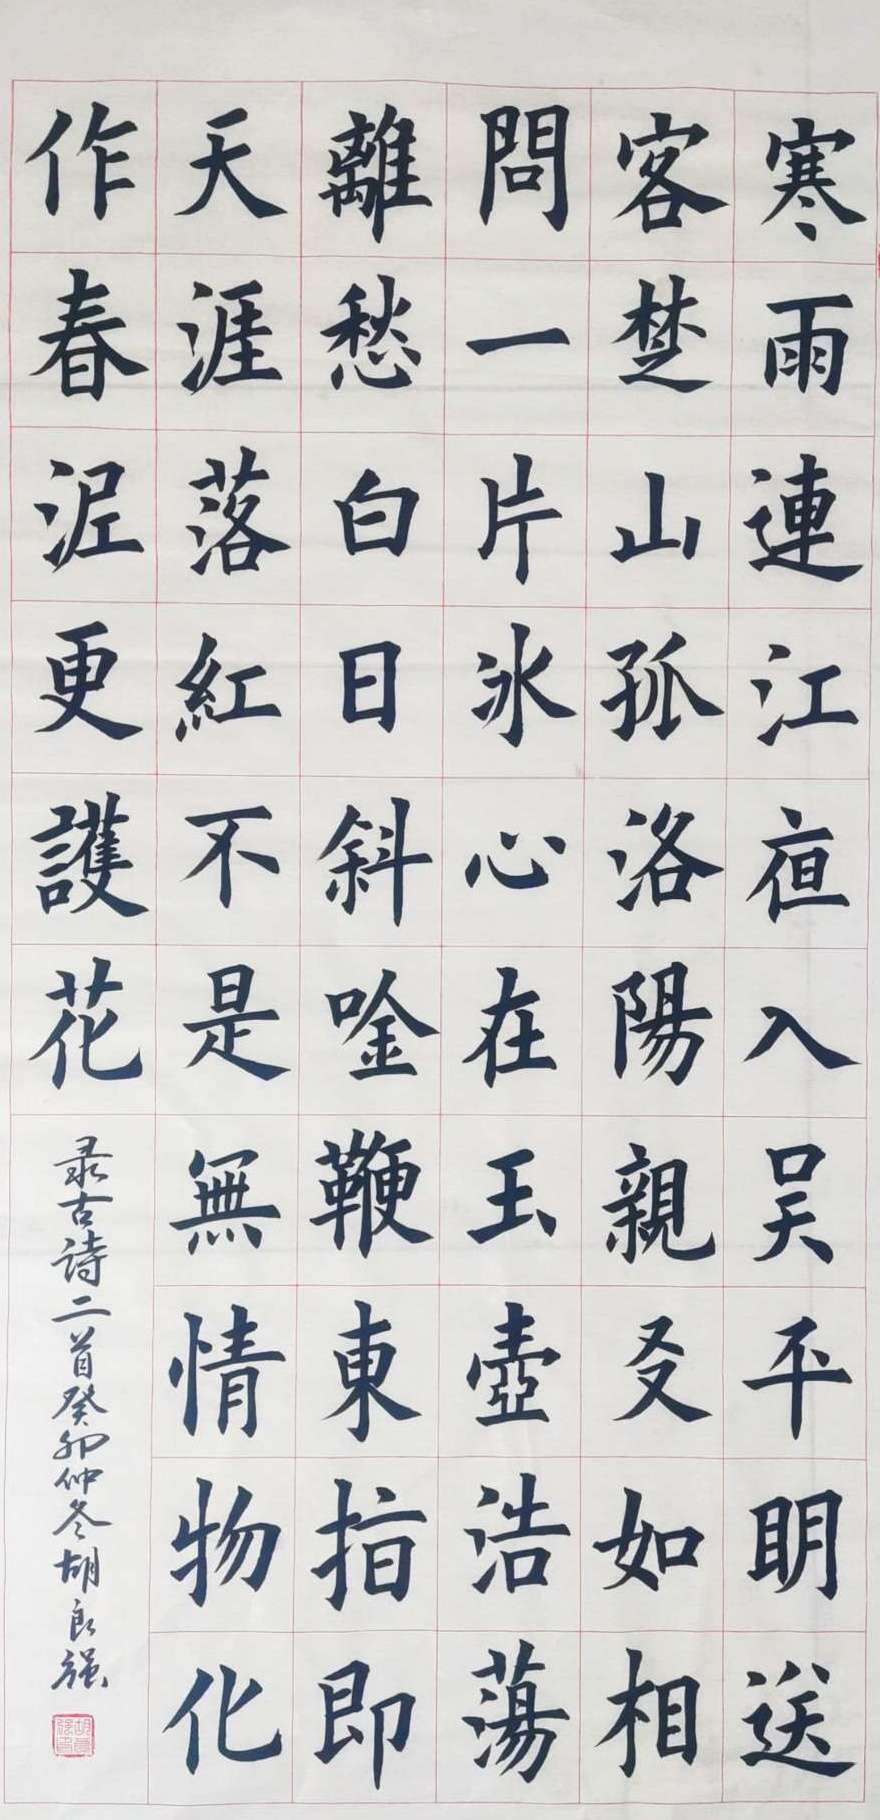 寒雨連江亱入吴平明送
客楚山孤洛陽親友如相
問一片冰心在玉壺浩蕩
離愁白日斜唫鞭東指即
天涯落紅不是無情物化
作春泥更護花
录古詩二首癸卯仲冬胡良强